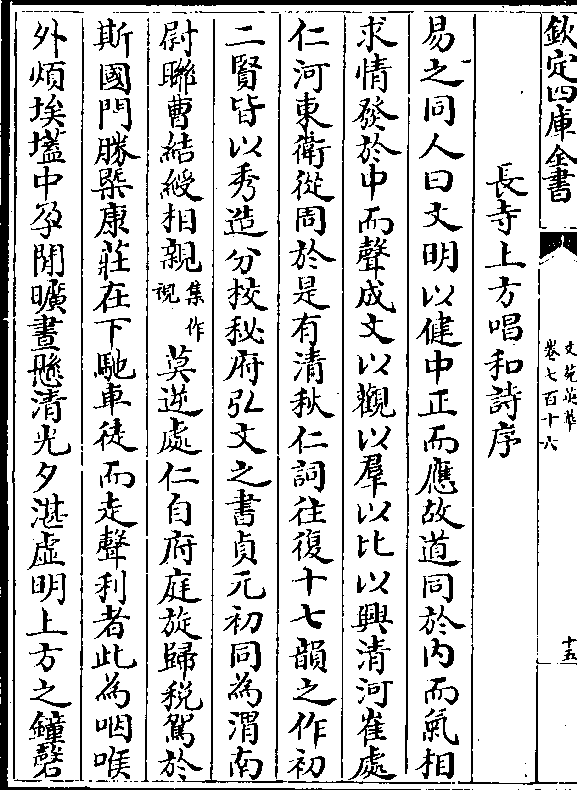 欽定四庫全書
文苑英華
卷七百十六
十五
長寺上方唱和詩序
易之同人曰文明以健中正而應故道同於内而氣相
求情發於中而聲成文以觀以羣以比以興清河崔處
仁河東衛從周於是有清秋仁詞往復十七韻之作初
二賢皆以秀造分挍秘府弘文之書貞元初同為渭南
尉聯曹結綬相親集作視莫逆處仁自府庭旋歸稅駕於
斯國門勝槩康莊在下馳車徒而走聲利者此為咽喉
外煩埃壒中孕閒曠晝懸清光夕湛虛明上方之鐘磬